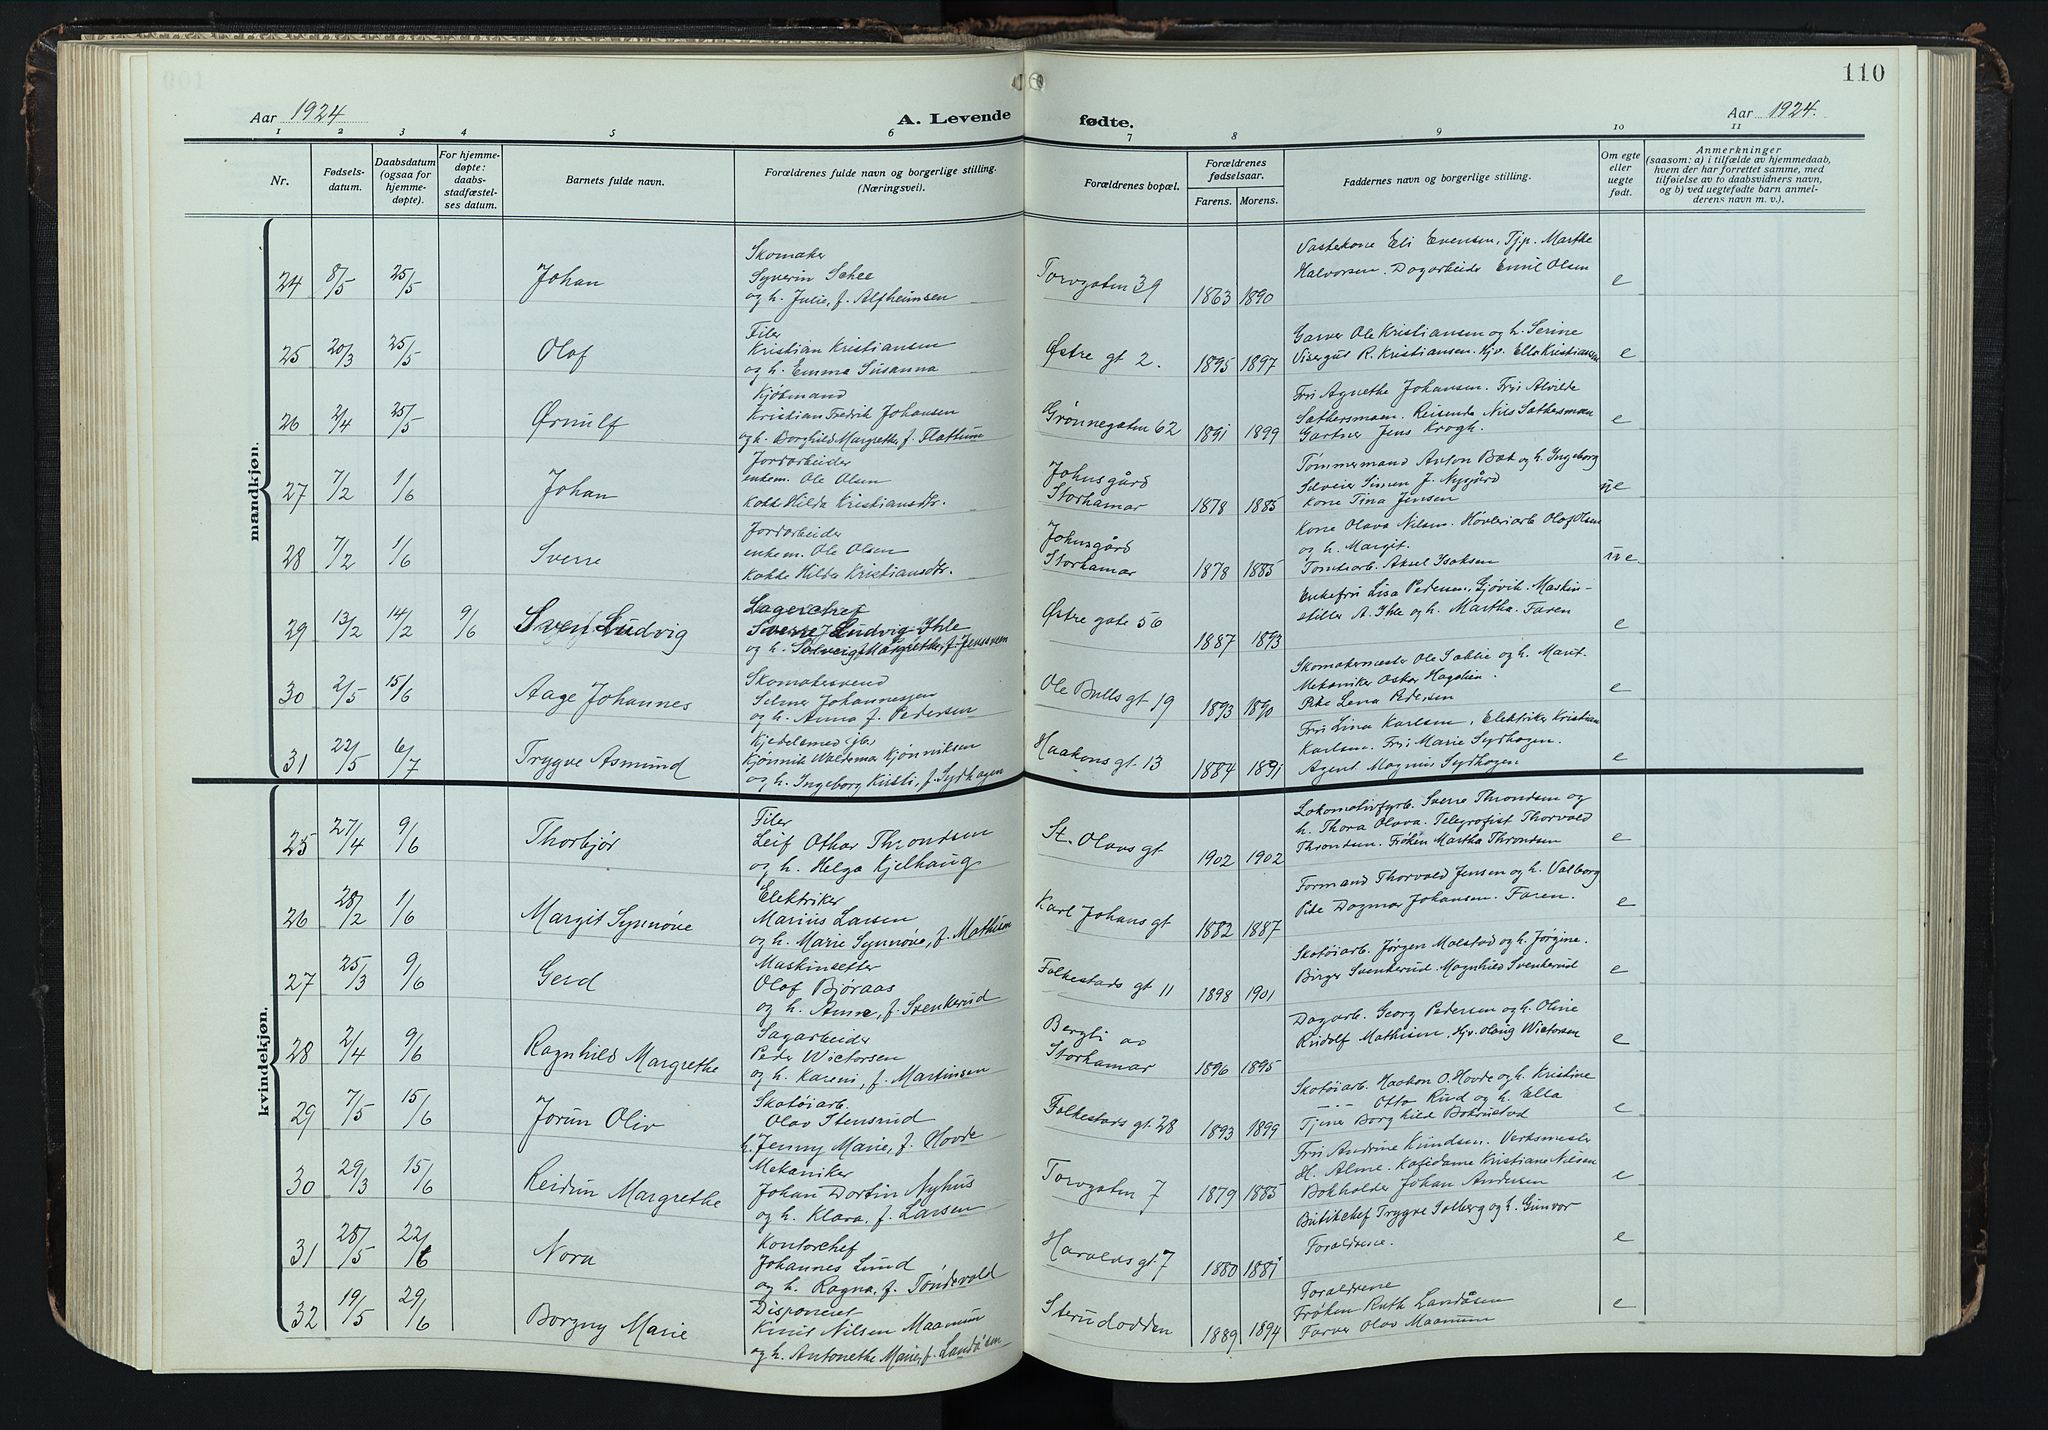 110
Aar 1924
A. Levende fødte.
Aar 1924.
1 2 3 4 5 6 7 8 9 10 11
Nr.
Fødsels-
datum.
Daabsdatum
(ogsaa for
hjemme-
døpte).
For hjemme-
døpte:
daabs-
stadfæstel-
ses datum.
Barnets fulde navn.
Forældrenes fulde navn og borgerlige stilling.
(Næringsvei).
Forældrenes bopæl.
Forældrenes
fødselsaar.
Farens. Morens.
Faddernes navn og borgerlige stilling.
Om egte
eller
uegte
født.
Anmerkninger
(saasom: a) i tilfælde av hjemmedaab,
hvem der har forrettet samme, med
tilføielse av to daabsvidners navn,
og b) ved uegtefødte barn anmel-
derens navn m. v.).
mandkjøn.
24 8/5 25/5 Johan
Skomaker
Syverin Schee
og h. Julie, f. Alfheimsen
Torvgaten 39 1863 1890
Vaskekone Eli Evensen, Tjp. Marthe
Halvorsen. Dagarbeider Emil Olsen
e
25 20/3 25/5 Olof
Filer
Kristian Kristiansen
og h. Emma Susanna
Østre gt 2. 1895 1897
Garver Ole Kristiansen og h. Serine
Visergut R. Kristiansen. Hjv. Ella Kristiansen
e
26 2/4 25/5 Ørnulf
Kjøbmand
Kristian Fredrik Johansen
og h. Borghild Margrethe, f. Flattum
Grønnegaten 62 1891 1899
Fru Agnethe Johansen. Fru Alvilde
Sæthersmoen. Reisende Nils Sæthersmoen
Gartner Jens Krogh.
e
27 7/2 1/6 Johan
Jordarbeider
enkem. Ole Olsen
Kokke Hilda Kristiansdtr.
Johnsgård
Storhamar 1878 1885
Tømmermand Anton Bæk og h. Ingeborg
Selveier Simen J. Nygård
Kone Tina Jensen
ue
28 7/2 1/6 Sverre
Jordarbeider
enkem. Ole Olsen
Kokke Hilda Kristiansdtr.
Johnsgård
Storhamar 1878 1885
Kone Olava Nilsen. Høvleriarb. Olaf Olsen
og h. Margit.
Tomtearb. Aksel Isaksen
ue
29 13/2 14/2 9/6 Sven Ludvig
Lagerchef
Sverre Ludvig Ihle
og h. Solveig Margrethe, f. Jenssveen
Østre gate 56 1887 1893
Enkefru Lisa Pedersen, Gjøvik. Maskin-
stiller A. Ihle og h. Martha. Faren
e
30 2/5 15/6 Aage Johannes
Skomakersvend
Selmer Johannessen
og h. Anna f. Pedersen
Ole Bulls gt 19 1893 1890
Skomakermester Ole Sæhlie og h. Marit.
Mekaniker Oskar Hagelien.
Pike Lena Pedersen
e
31 22/5 6/7 Trygve Asmund
Kjedelsmed (jb.)
Kjønnik Waldemar Kjønniksen
og h. Ingeborg Kirsti, f. Sydhagen
Haakons gt. 13 1884 1891
Fru Lina Karlsen, Elektriker Kristian
Karlsen. Fru Marie Sydhagen.
Agent Magnus Sydhagen
e
kvindekjøn.
25 27/4 9/6 Thorbjør
Filer
Leif Othar Throndsen
og h. Helga Kjelhaug
St. Olavs gt 1902 1902
Lokomotivfyrb. Sverre Throndsen og
h. Thora Olava. Telegrafist Thorvald
Throndsen. Frøken Martha Throndsen
e
26 28/2 1/6 Margit Synnøve
Elektriker
Marius Larsen
og h. Marie Synnøve, f. Mathisen
Karl Johans gt 1882 1887
Formand Thorvald Jensen og h. Valborg
Pike Dagmar Johansen. Faren.
e
27 25/3 9/6 Gerd
Maskinsetter
Olaf Bjøraas
og h. Anna, f. Svenkerud
Falkestads gt 11 1898 1901
Skotøiarb. Jørgen Malstad og h. Jørgine.
Birger Svenkerud. Magnhild Svenkerud
e
28 2/4 9/6 Ragnhild Margrethe
Sagarbeider
Peder Wictorsen
og h. Kareni, f. Martinsen
Bergli av
Storhamar 1896 1895
Dagarb. Georg Pedersen og h. Oline
Rudolf Mathisen. Hjv. Olaug Wictorsen
e
29 7/5 15/6 Jorun Oliv
Skotøiarb.
Olav Stensrud
h. Jenny Marie, f. Hovde
Falkestads gt. 28 1893 1899
Skotøiarb. Haakon O. Hovde og h. Kristine
— — Otto Rud og h. Ella
Tjener Borghild Bokrustad
e
30 29/3 15/6 Reidun Margrethe
Mekaniker
Johan Dortin Nyhus
og h. Klara, f. Larsen
Torvgaten 7 1879 1885
Fru Andrine Knudsen. Verksmester
H. Alme. Kafédame Kristiane Nilsen
Bokholder Johan Andersen
e
31 28/5 22/6 Nora
Kontorchef
Johannes Lund
og h. Ragna, f. Tøndevold
Haralds gt. 7 1880 1881
Butikchef Trygve Solberg og h. Gunvor
Forældrene.
e
32 19/5 29/6 Borgny Marie
Disponent
Knut Nilsen Maamun
og h. Antonethe Marie, f. Landåsen
Sterudodden 1889 1894
Forældrene
Frøken Ruth Landåsen
Farver Olav Maamum
e